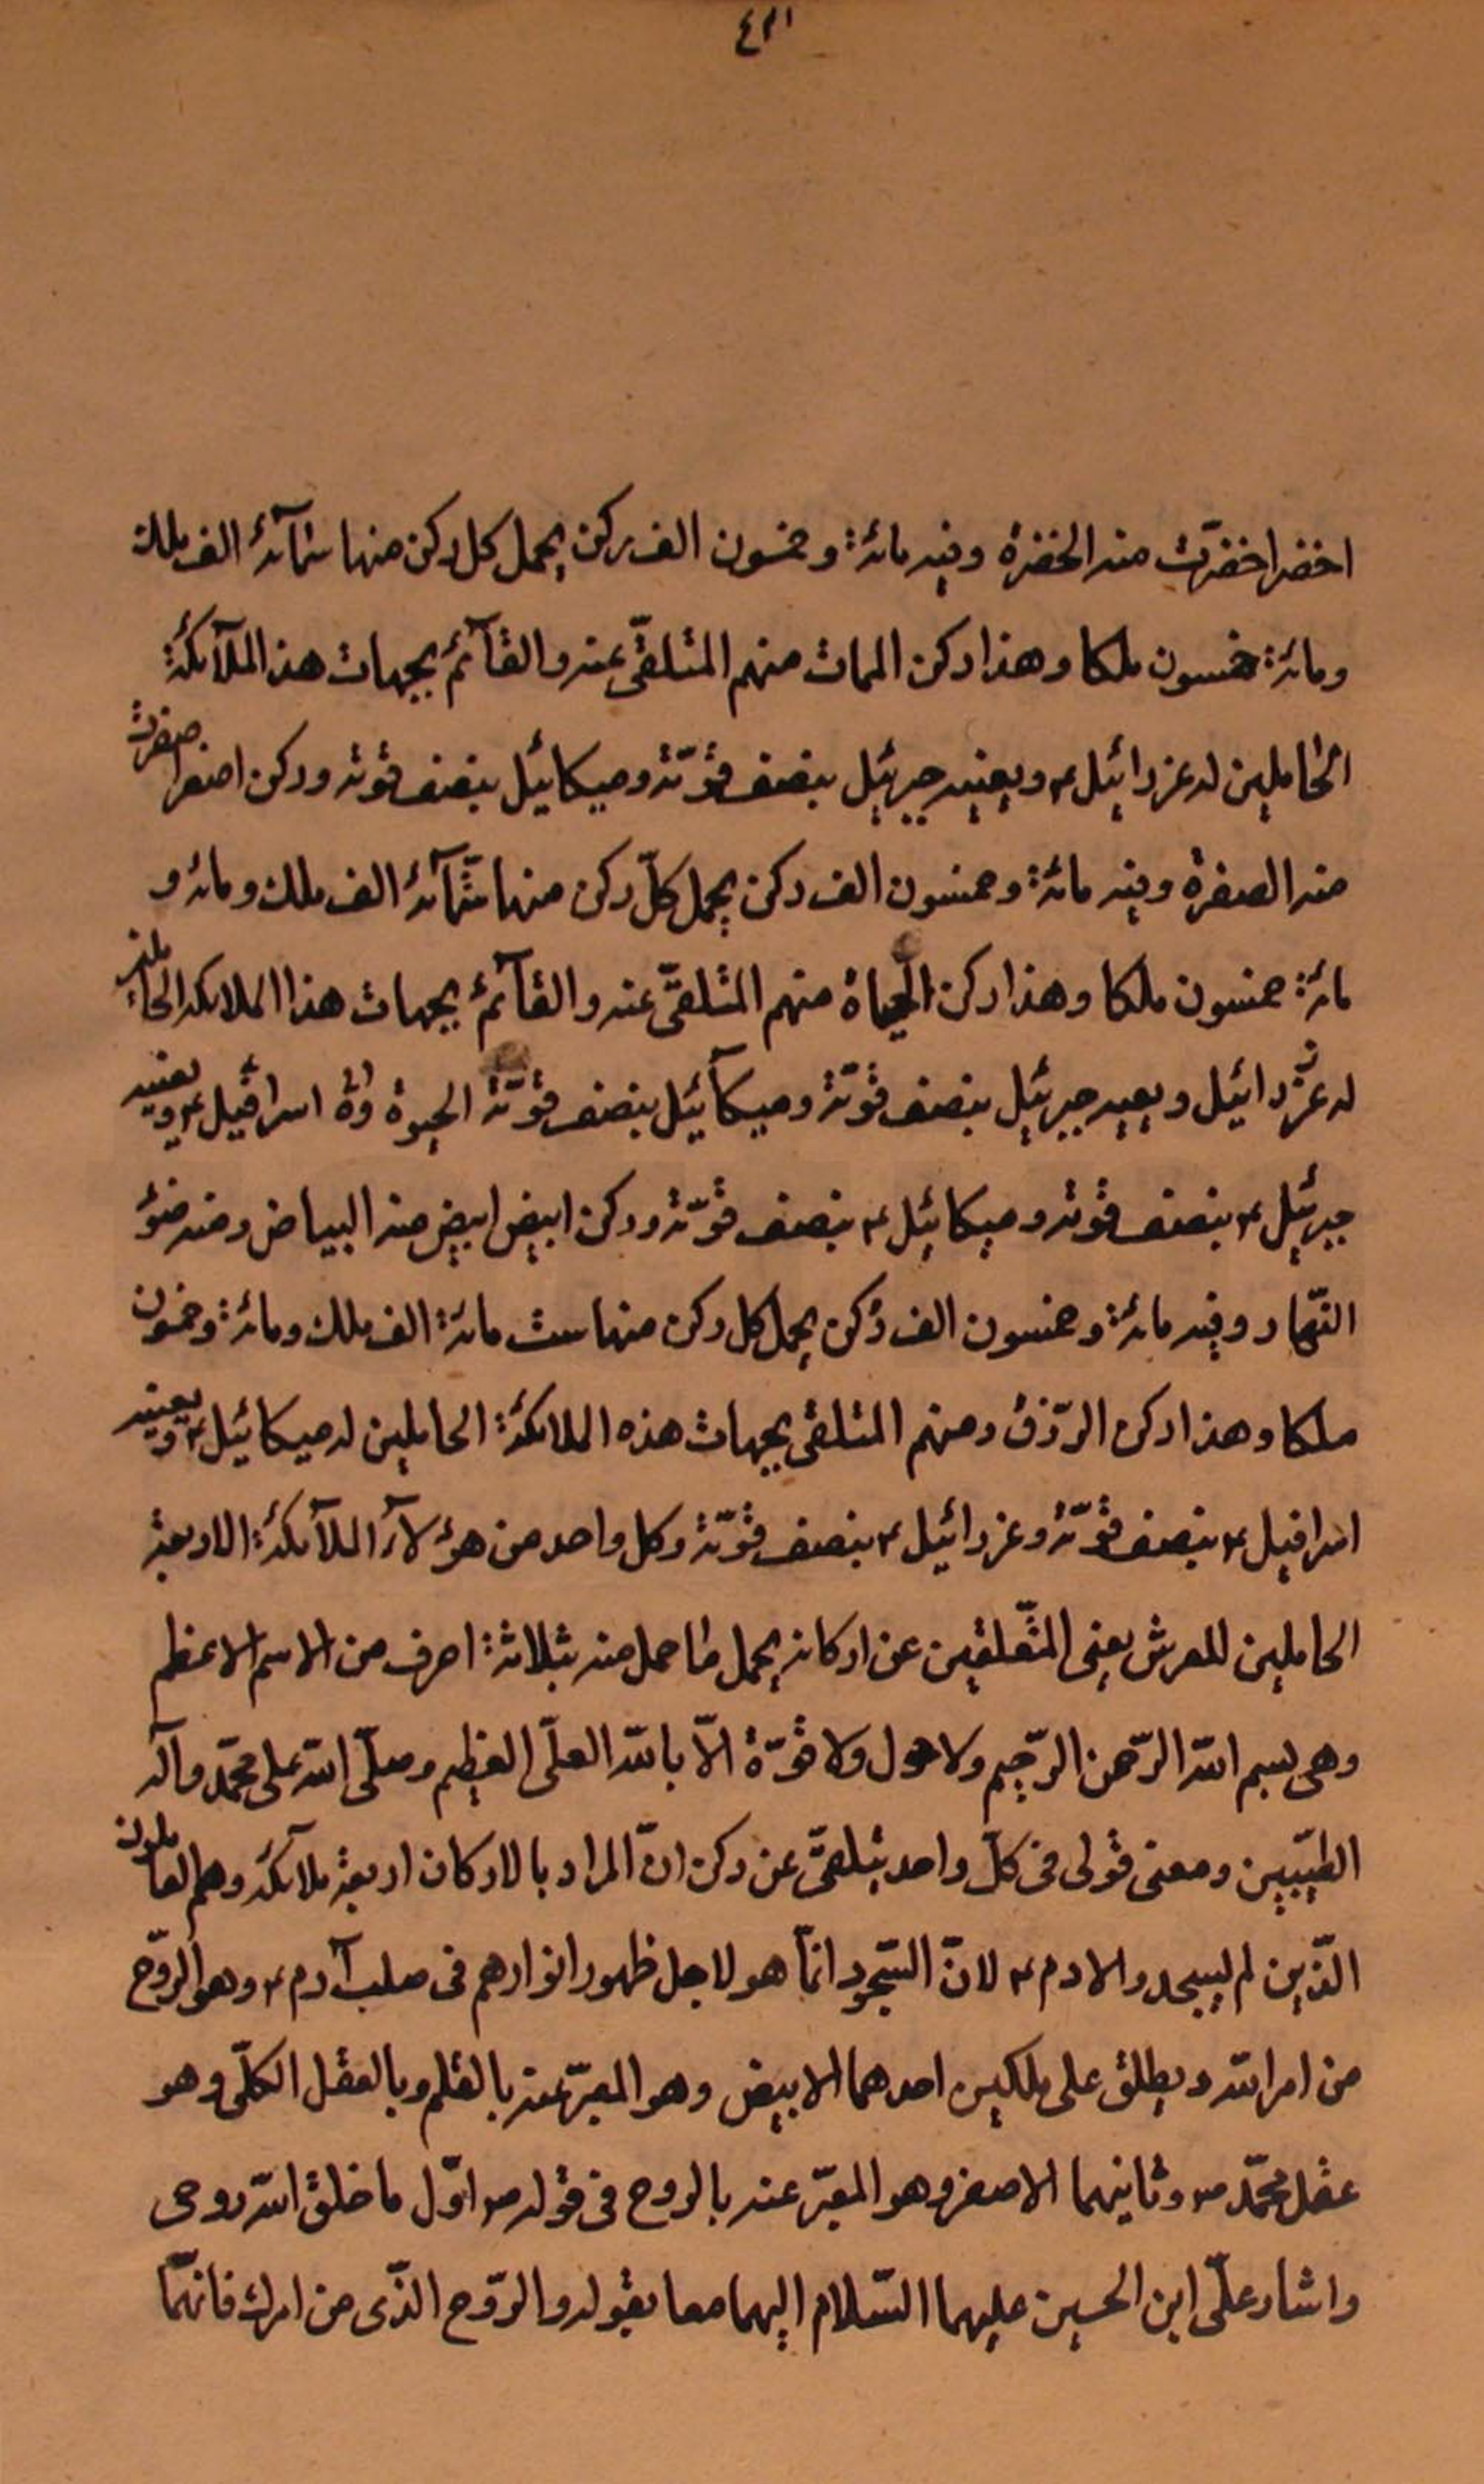 ٤٢١
اخضر اخضرّت منه الخضرة وفيه مائة وخمسون الف ركن يحمل كل ركن منها ستمآئة الف ملك
ومائة خمسون ملكا وهذا ركن الممات منهم المتلقّى عنه والقآئم بجهات هذ الملآئكة
الحاملين له عزرائيل ٤ ويعينه جبرئيل بنصف قوّته وميكائيل بنصف قوته وركن اصفر اصفرت
منه الصفرة وفيه مائة وخمسون الف ركن يحمل كلّ ركن منها ستّمآئة الف ملك ومائه و
مائة خمسون ملكا وهذا ركن الحياة منهم المتلقّى عنه والقآئم بجهات هذا الملائكه الحاملين
له عزرائيل ويعينه جبرئيل بنصف قوّته وميكآئيل بنصف قوّته الحيوة اسرافيل ٤ ويعينه
جبرئيل ٤ بنصف قوته وميكائيل ٤ بنصف قوّته وركن ابيض ابيض منه البياض ومنه ضوٶ
النّهار وفيه مائة وخمسون الف ركن يحمل كل ركن منها ست مائة الف ملك ومائة وخمسون
ملكا وهذا ركن الرّزق ومنهم المتلقى بجهات هذه الملائكة الحاملين له ميكائيل ٤ ويعينه
اسرافيل ٤ بنصف قوّته وعزرائيل ٤ بنصف قوّته وكل واحد من هؤلآء الملآئكة الاربعة
الحاملين للعرش يعنى المتّعلقين عن اركانه يحمل ما حمل منه بثلاثة احرف من الاسم الاعظم
وهى بسم الله الرّحمن الرّحيم ولا حول ولا قوّة الّا بالله العلّى العظيم وصلّى الله على محمّد وآله
الطيّبين ومعنى قولى فى كلّ واحد يتلقىّ عن ركن انّ المراد بالاركان اربعة ملائكه وهم العالون
الذّين لم يسجدوا لادم ٤ لانّ السّجود انمّا هو لاجل ظهور انوارهم فى صلب آدم ٤ وهو الرّوح
من امر الله ويطلق على ملكين احدهما الابيض وهو المعبّر عنه بالقلم وبالعقل الكلّى وهو
عقل محمّد ص وثانيهما الاصفر وهو المعبّر عنه بالروح فى قوله ص اوّل ما خلق الله روحى
واشار علّى ابن الحسين عليهما السّلام اليهما معا بقوله والرّوح الذّى من امرك فانهّما